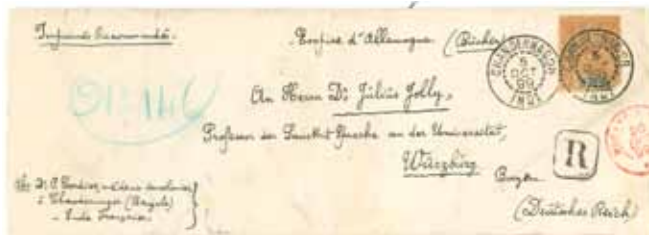 Imprimés Recommandés.
Empire d'Allemagne (Bücher)
CHANDERNAGOR
5
OCT
99
INDE
An Herrn Dr Julius Jolly,
Professor der Sanskrit Sprache an der Universität,
Würzburg
Bayern
(Deutsches Reich)
R
Dr P. Cordier, médecin
à Chandernagor (Bengale)
Inde Française